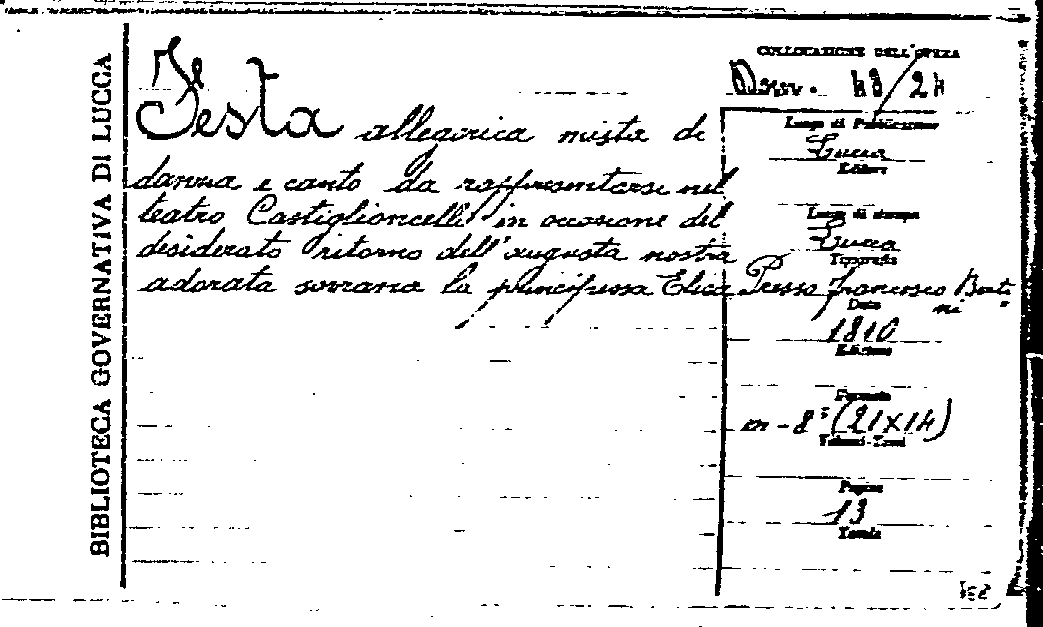 BIBLIOTECA GOVERNATIVA DI LUCCA
Festa allegorica mista di
danza e canto da rappresentarsi nel
teatro Castiglioncelli in occasione del
desiderato ritorno dell'augusta nostra
adorata sovrana la principessa Elisa
COLLOCAZIONE DELL'OPERA
48/24
Luogo di Pubblicazione
Lucca
Editore
Luogo di stampa
Lucca
Tipografia
Presso Francesco Berti
ni
Data
1810
Edizione
Formato
in-8° (21x14)
Volumi-Tomi
Pagine
13
Tavole